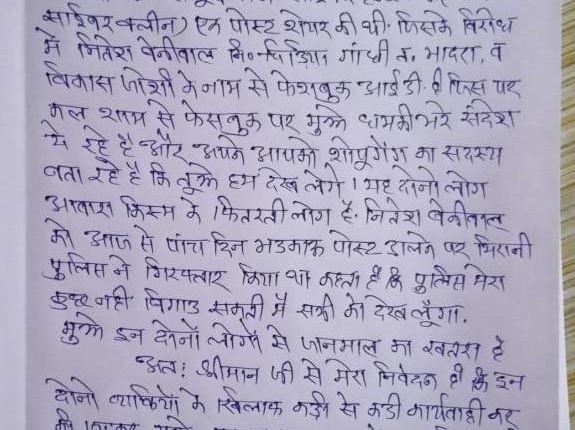 साईबर क्लीन) एक पोस्ट शेयर की थी. जिसके विरोध
में नितेश वेनीवाल नि० चिडिया गांधी त. भादरा, व
विकास जोशी के नाम से फेशबुक आई डी. है जिस पर
कल शाम से फेसबुक पर मुझे धमकी भरे संदेश
दे रहे है और अपने आपको शोपुगैंग का सदस्य
बता रहे है कि तुझे हम देख लेगे। यह दोनो लोग
आवारा किस्म के फितरती लोग है. नितेश वेनीवाल
को आज से पांच दिन भडकाऊ पोस्ट डालने पर भिरानी
पुलिस ने गिरफ्तार किया था कहता है कि पुलिस मेरा
कुछ नही बिगाड सकती मैं सभी को देख लूँगा.
मुझे इन दोनों लोगों से जानमाल का खतरा है
अतः श्रीमान जी से मेरा निवेदन है कि इन
दोनो व्यक्तियों के खिलाफ कडी से कडी कार्यवाही कर